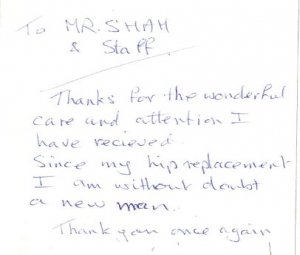 To MR. SHAH
& Staff
Thanks for the wonderful
care and attention I
have recieved.
Since my hip replacement
I am without doubt
a new man.
Thank you once again